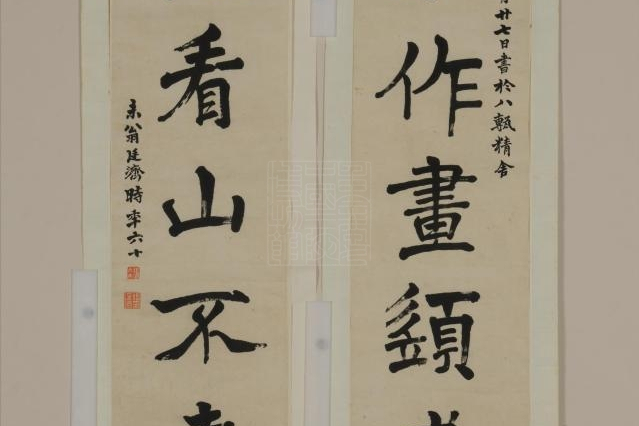 廿七日書於八甎精舍
作畫須
看山不
未翁廷濟時年六十